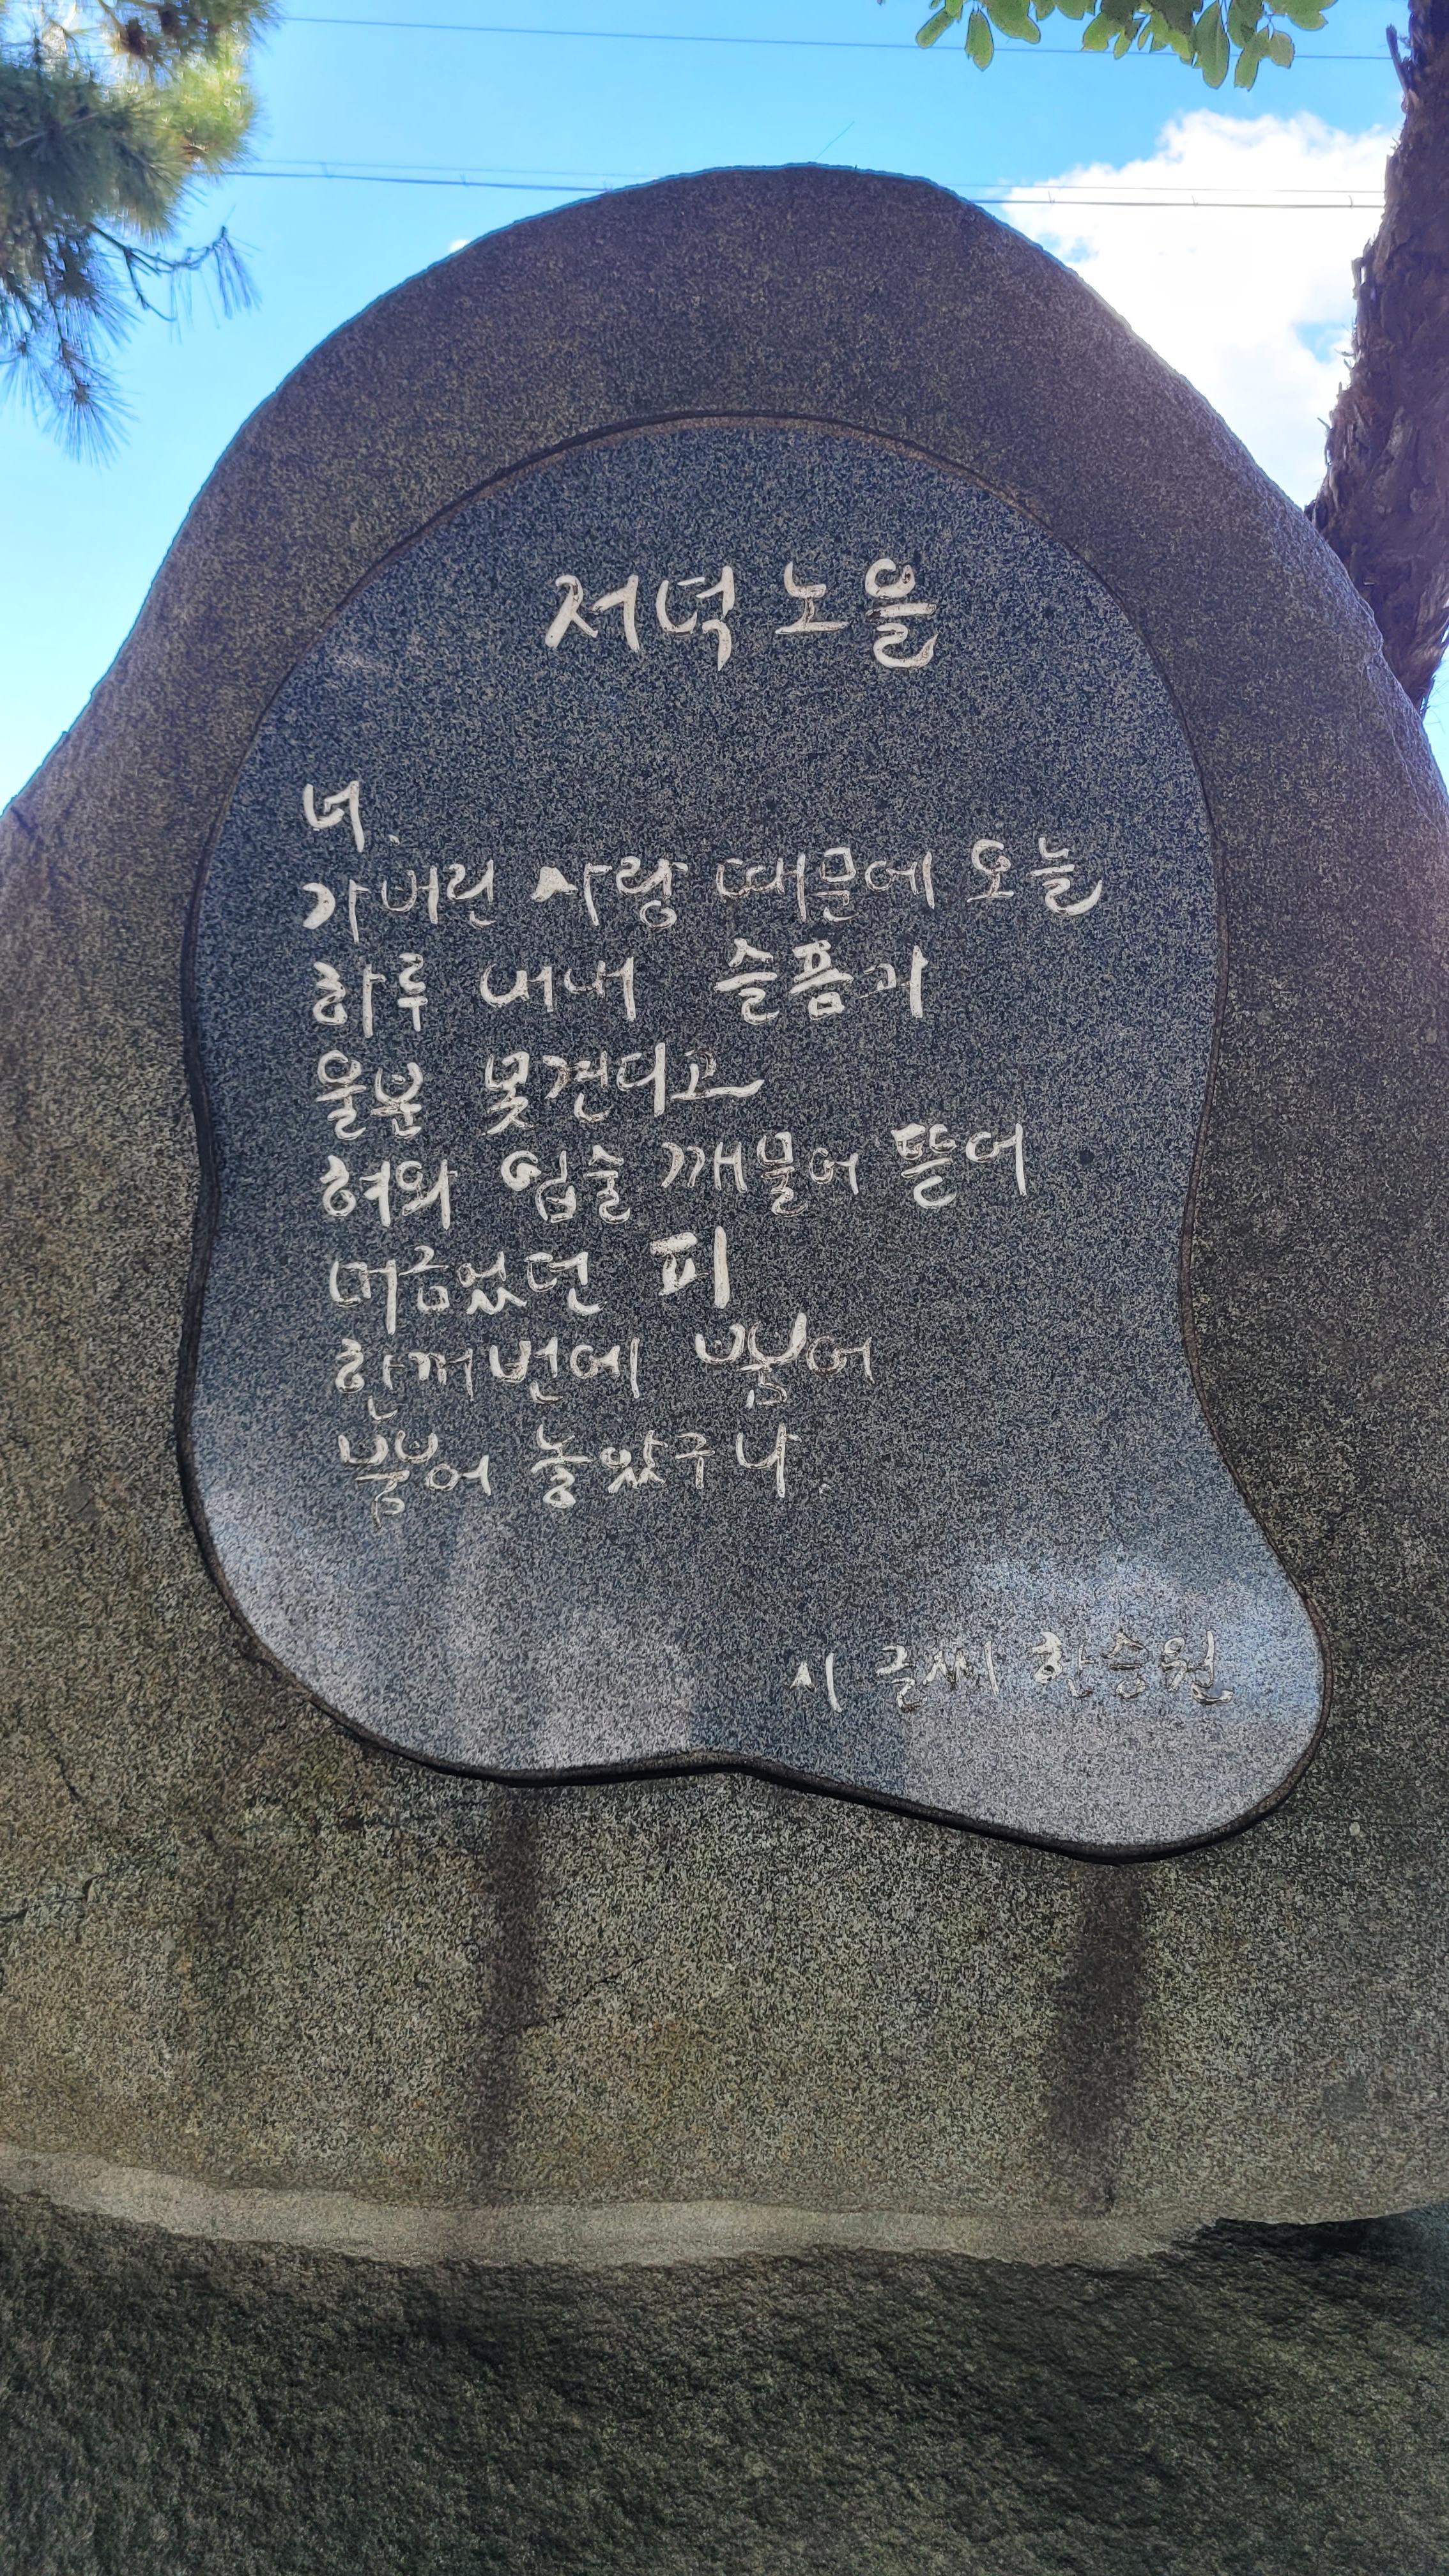 저녁 노을
너.
가버린 사랑 때문에 오늘
하루 내내 슬픔과
울분 못견디고
혀와 입술 깨물어 뜯어
머금었던 피
한꺼번에 뿜어
뿜어 놓았구나.
시 글씨 한승원